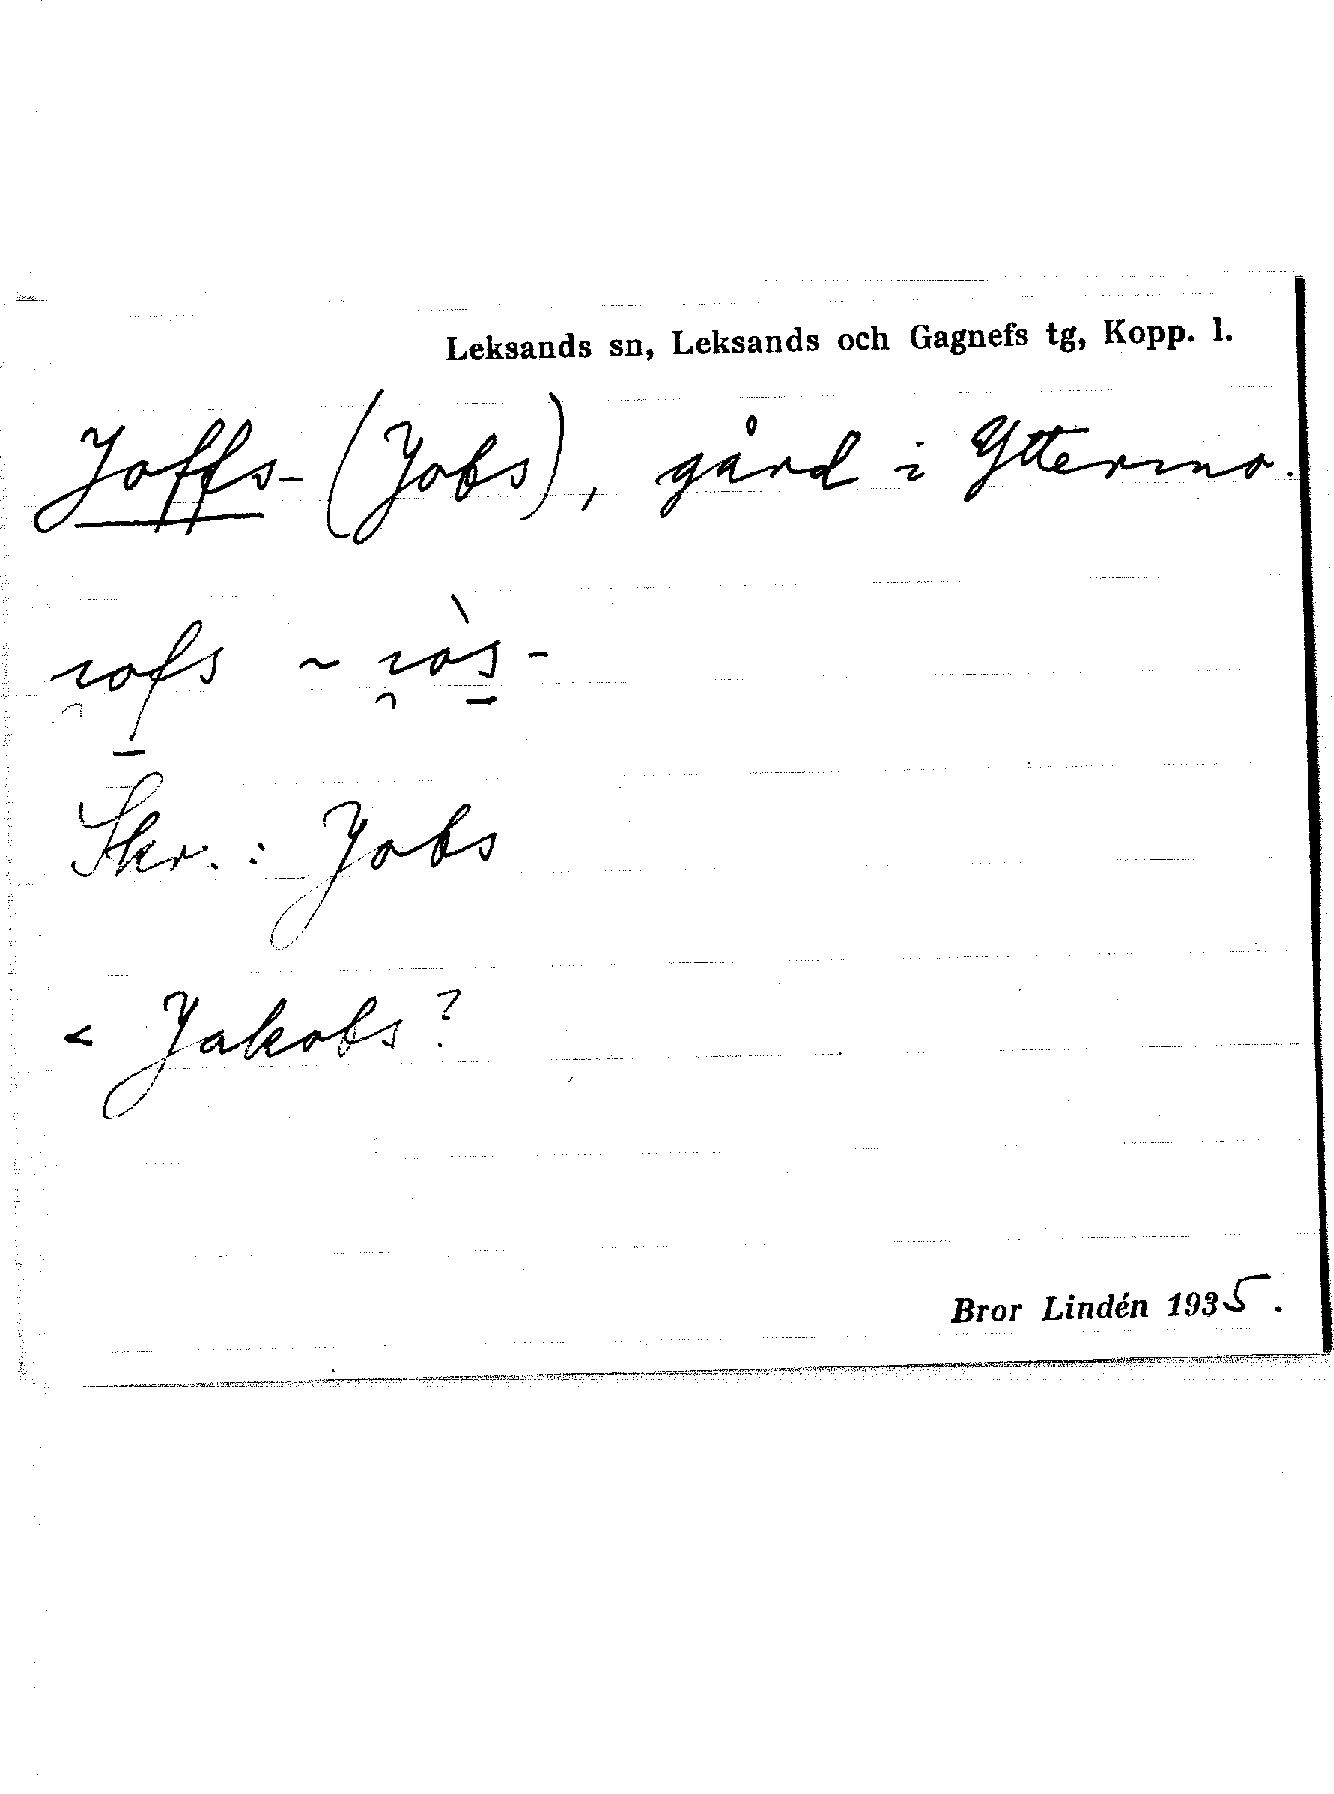 Leksands sn, Leksands och Gagnefs tg, Kopp. l.
Joffs- (Jobs), gård i Yttermo.
ı̯ofs̱ ~ ı̯òs̱-
Skr.: Jobs
< Jakobs?
Bror Lindén 1935.